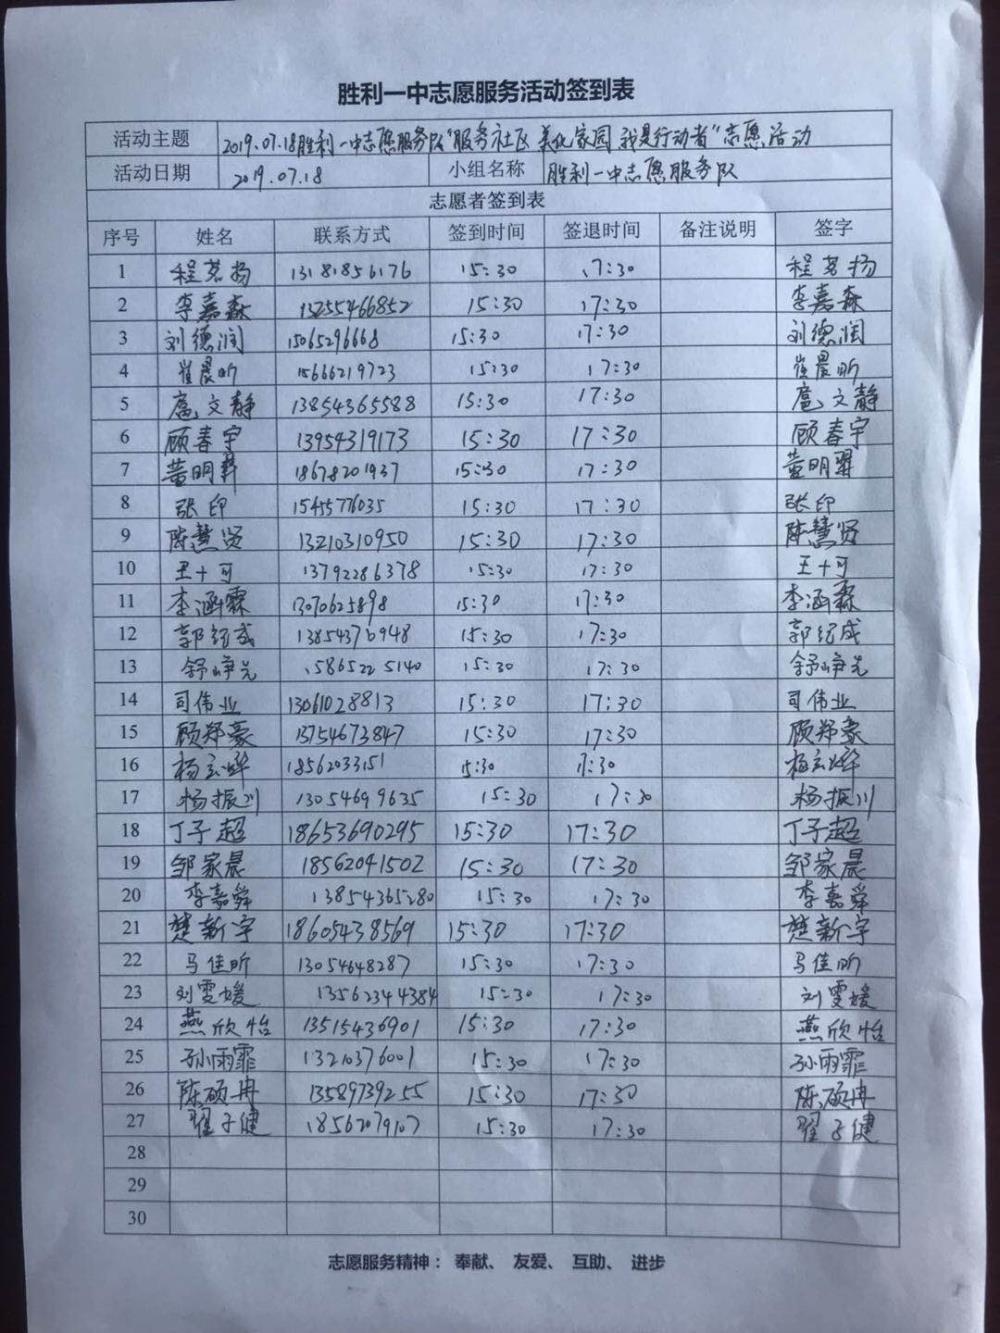 胜利一中志愿服务活动签到表
活动主题 2019.07.18胜利一中志愿服务队"服务社区 美化家园 我是行动者"志愿活动
活动日期 2019.07.18 小组名称 胜利一中志愿服务队
志愿者签到表
序号 姓名 联系方式 签到时间 签退时间 备注说明 签字
1 程茗扬 13181856176 15:30 17:30 程茗扬
2 李嘉森 13255466852 15:30 17:30 李嘉森
3 刘德润 15065296668 15:30 17:30 刘德润
4 崔晨昕 15666219723 15:30 17:30 崔晨昕
5 扈文静 13854365588 15:30 17:30 扈文静
6 顾春宇 13954319173 15:30 17:30 顾春宇
7 黄明羿 18678201937 15:30 17:30 黄明羿
8 张印 15:30 17:30 张印
9 陈慧贤 13210310950 15:30 17:30 陈慧贤
10 王十可 13792286378 15:30 17:30 王十可
11 李涵霖 15:30 17:30 李涵霖
12 郭绍成 13854370948 15:30 17:30 郭绍成
13 舒峥光 15865225140 15:30 17:30 舒峥光
14 司伟业 13061028813 15:30 17:30 司伟业
15 顾郑豪 13754673847 15:30 17:30 顾郑豪
16 杨玄烨 18562033151 15:30 17:30 杨玄烨
17 杨振川 13054699635 15:30 17:30 杨振川
18 丁子超 18653690295 15:30 17:30 丁子超
19 邹家晨 18562041502 15:30 17:30 邹家晨
20 李嘉舜 13854365280 15:30 17:30 李嘉舜
21 楚新宇 18605438569 15:30 17:30 楚新宇
22 马佳昕 13054648287 15:30 17:30 马佳昕
23 刘雯媛 13562344384 15:30 17:30 刘雯媛
24 燕欣怡 13515436901 15:30 17:30 燕欣怡
25 孙雨霏 13210376001 15:30 17:30 孙雨霏
26 陈硕冉 13589739255 15:30 17:30 陈硕冉
27 翟子健 18562079107 15:30 17:30 翟子健
28
29
30
志愿服务精神： 奉献、 友爱、 互助、 进步